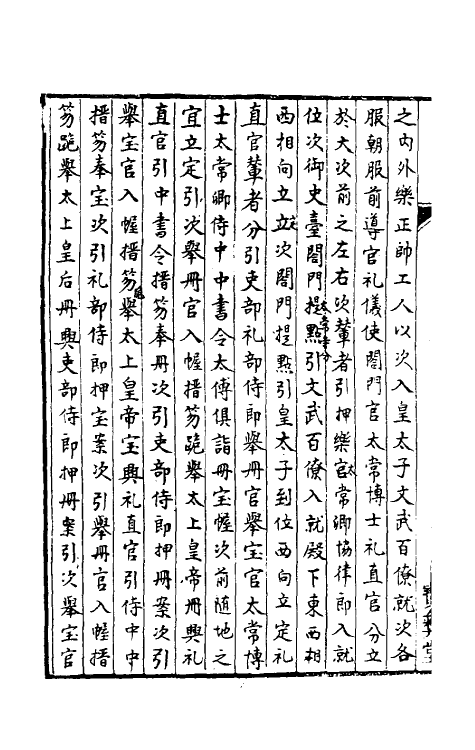 之内外樂正帥工人以次入皇太子文武百僚就次各
服朝服前導官礼儀使閤門官太常博士礼直官分立
於大次前之左右次輦者引押樂官太常卿協律郎入就
位次御史臺閤門提點引文武百僚入就殿下東西相
西相向立定次閤門提點引皇太子到位西向立定礼
直官輦者分引吏部礼部侍郎舉冊官舉宝官太常博
士太常卿侍中中書令太傅俱詣冊宝幄次前随地之
宜立定引次舉冊官入幄搢笏跪舉太上皇帝冊興礼
直官引中書令搢笏奉冊次引吏部侍郎押冊案次引
舉宝官入幄搢笏跪舉太上皇帝宝興礼直官引侍中中
搢笏奉宝次引礼部侍郎押宝案次引舉冊官入幄搢
笏跪舉太上皇后冊興吏部侍郎押冊案引次舉宝官